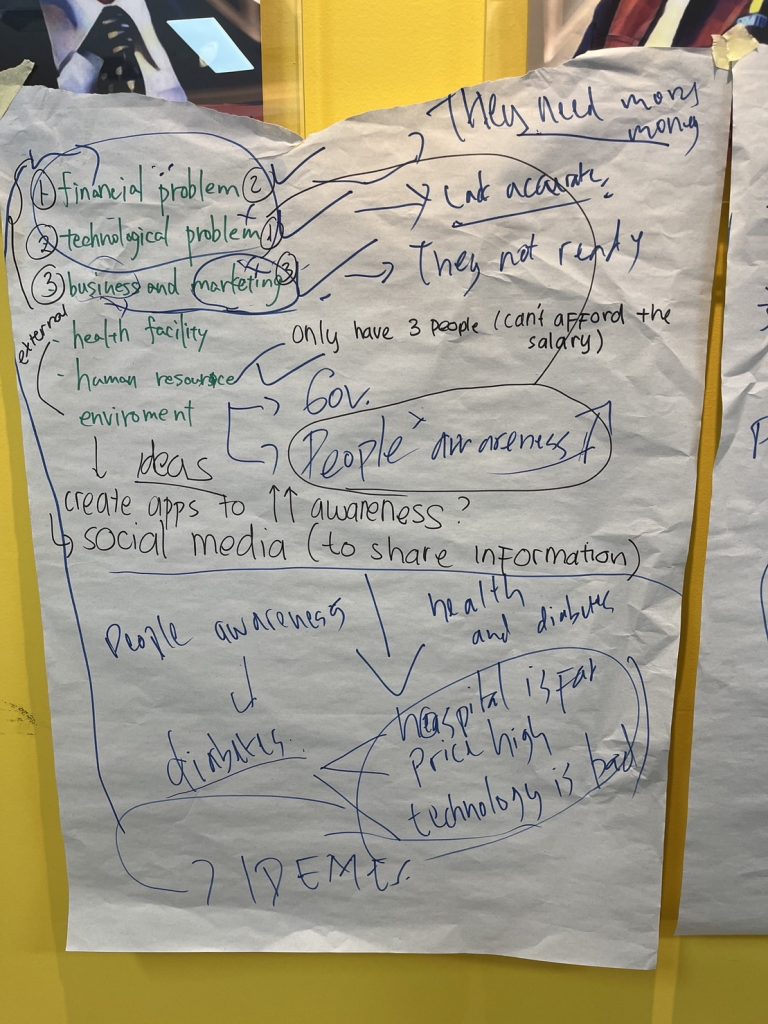 They need more
money
① financial problem ②
Lack accurate
② technological problem ①
③ business and marketing ③
They not ready
external
- health facility
only have 3 people (can't afford the
salary)
- human resource
Gov.
enviroment
People awareness
ideas
create apps to ↑↑ awareness?
↳ social media (to share information)
People awareness
health
and diabetes
diabetes.
hospital is far
price high
technology is bad
→ IDEMEs.